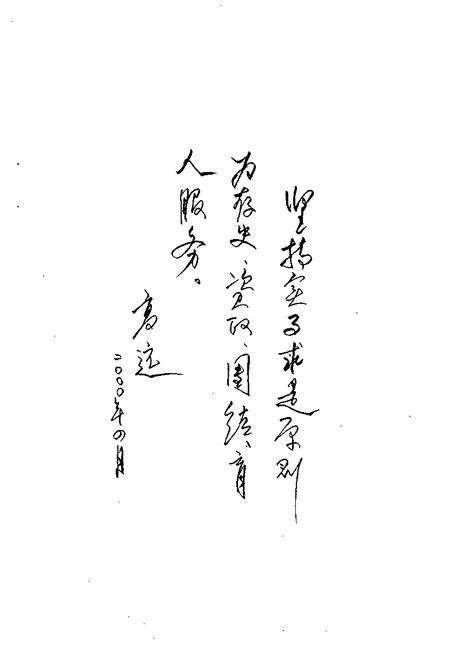 坚持实事求是原则
为存史、资政、团结、育
人服务。
高远
二〇〇〇年四月